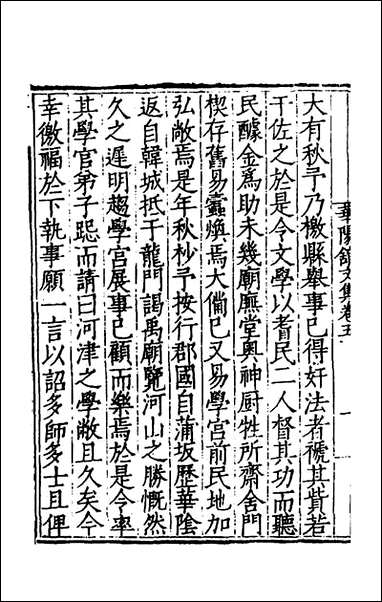 大有秋予乃檄縣舉事已得奸法者褫其貲若
干佐之於是令文學以耆民二人督其功而聽
民醵金為助未幾廟廡堂奧神厨牲所齋舍門
楔存舊易蠹煥焉大備已又易學宮前民地加
弘敞焉是年秋杪予按行郡國自蒲坂歷華陰
返自韓城抵于龍門謁禹廟覽河山之勝慨然
久之遲明趨學官展事已顧而樂焉於是令率
其學官弟子跽而請曰河津之學敝且久矣今
幸徼福於下執事願一言以詔多師多士且俾
華陽館文集卷五